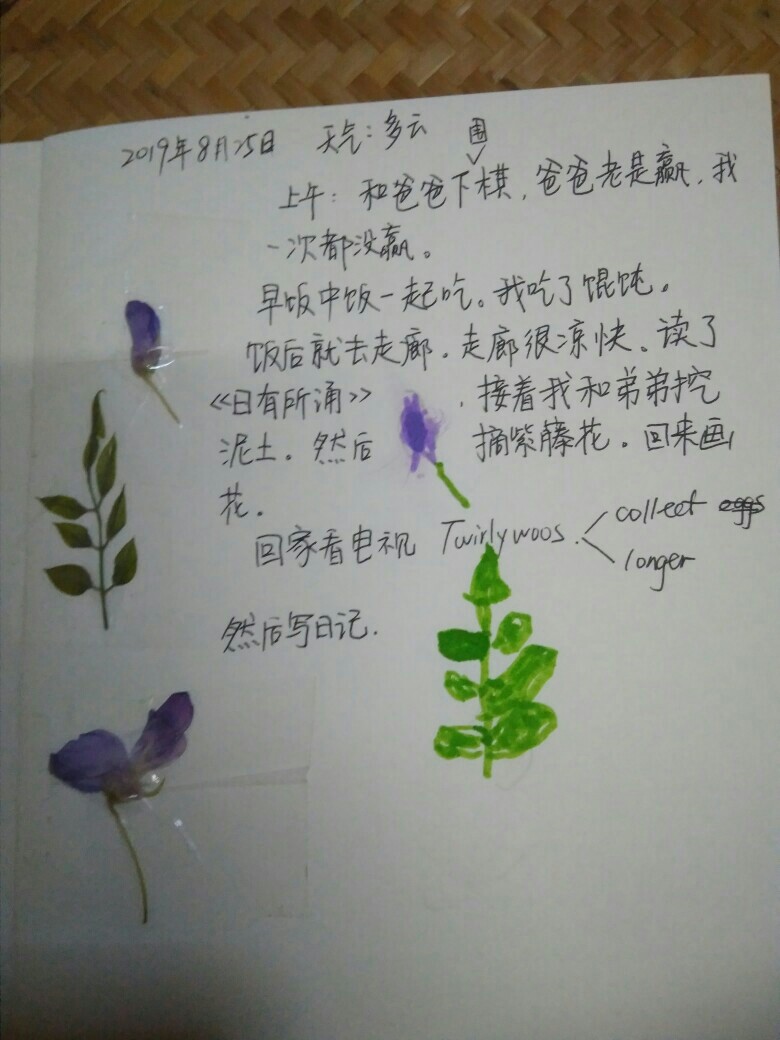 2019年8月25日 天气:多云
围
上午:和爸爸下棋,爸爸老是赢,我
一次都没赢。
早饭中饭一起吃。我吃了馄饨。
饭后就去走廊.走廊很凉快、读了
《日有所涌》,接着我和弟弟挖
泥土。然后摘紫藤花。回来画
花。
回家看电视 Twirlywoos. collect eggs
longer
然后写日记.